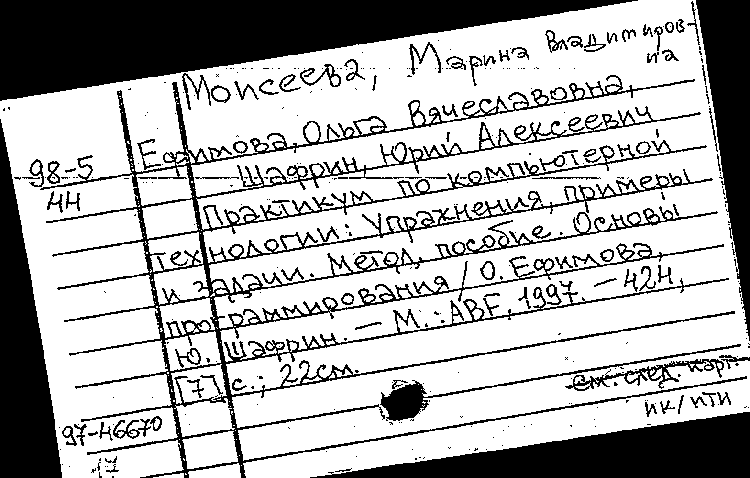 Моисеева, Марина Владимиров-
на
Ефимова, Ольга Вячеславовна,
98-5
44
Шафрин, Юрий Алексеевич
Практикум по компьютерной
технологии: Упражнения, примеры
и задачи. Метод. пособие. Основы
программирования / О. Ефимова,
Ю. Шафрин. — М.: ABF, 1997. — 424,
[7] с.; 22см.
см. след. карт.
97-46670
17
ИК/ПТИ